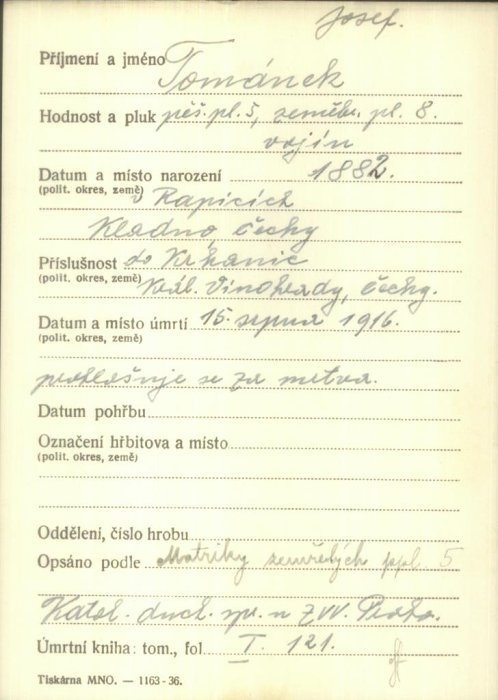 Josef.
Příjmení a jméno Tománek
Hodnost a pluk pěš. pl. 5, zeměbr. pl. 8.
vojín
Datum a místo narození 1882.
(polit. okres, země) v Rapicích
Kladno, Čechy
Příslušnost do Krhanic
(polit. okres, země) Král. Vinohrady, Čechy.
Datum a místo úmrtí 15. srpna 1916.
(polit. okres, země)
prohlašuje se za mrtva.
Datum pohřbu
Označení hřbitova a místo
(polit. okres, země)
Oddělení, číslo hrobu
Opsáno podle Matriky zemřelých ppl. 5
Katol. duch. spr. u ZVV. Praha.
Úmrtní kniha: tom., fol. I. 121.
Tiskárna MNO. — 1163-36.